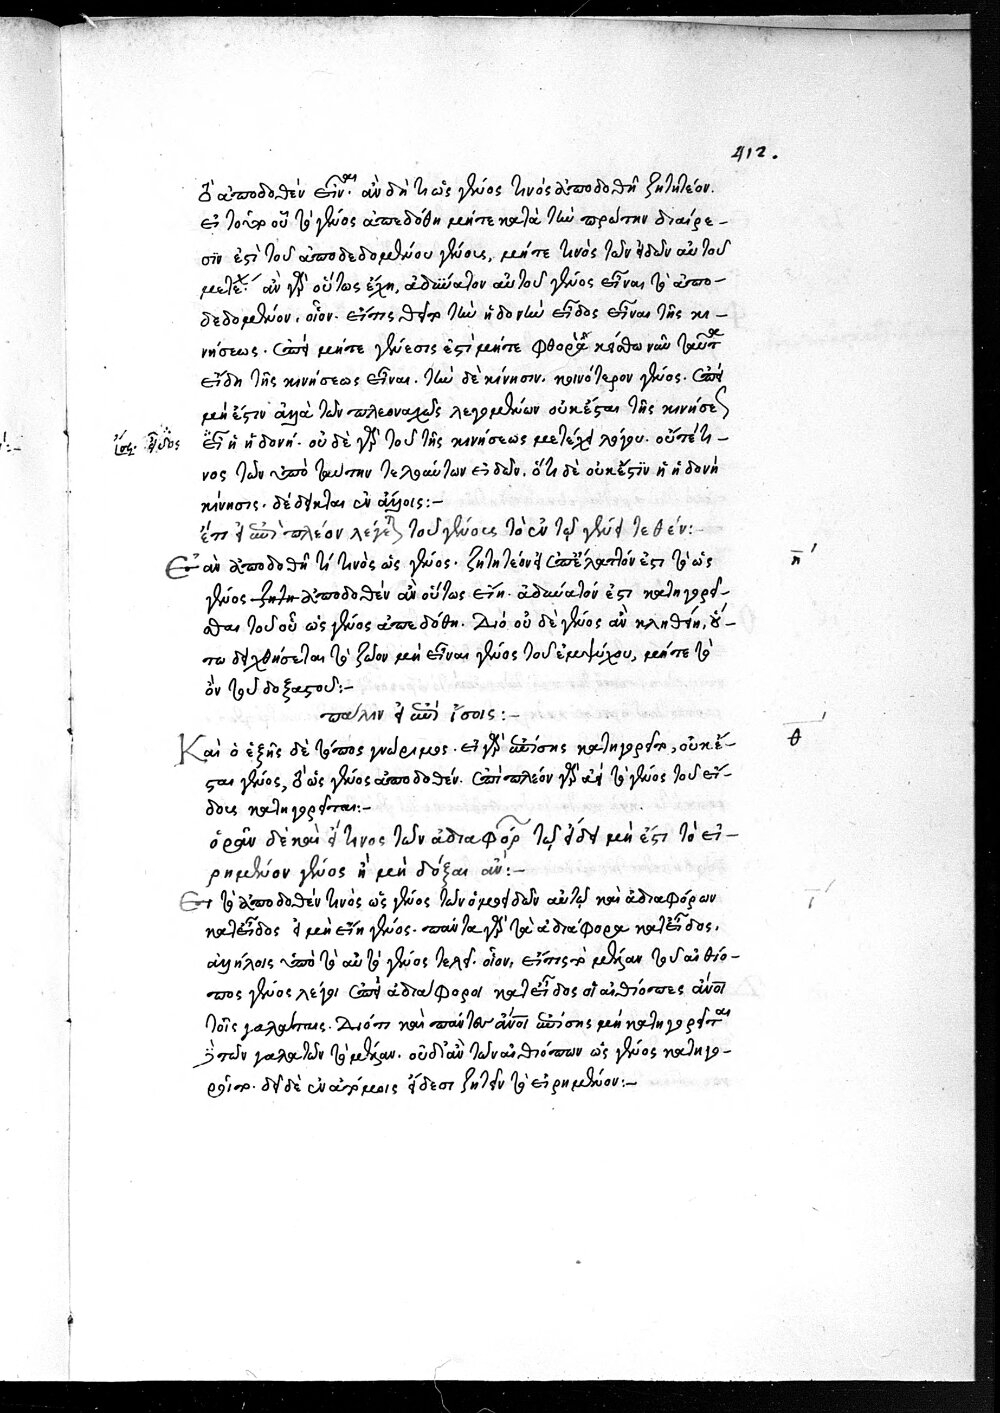 412.
ὃ ἀποδοθὲν εἶναι. ἂν δή τι ὡς γένος τινὸς ἀποδοθῇ ζητητέον
εἰ τοῦ οὗ τὸ γένος ἀπεδόθη μήτε κατὰ τὴν πρώτην διαίρε-
σίν ἐστι τοῦ ἀποδεδομένου γένους, μήτε τινὸς τῶν εἰδῶν αὐτοῦ
μετέχει. ἂν γὰρ οὕτως ἔχη, ἀδύνατον αὐτοῦ γένος εἶναι τὸ ἀπο-
δεδομένον. οἷον. εἴ τις θεῖτο τὴν ἡδονὴν εἶδος εἶναι τῆς κι-
νήσεως. ἐπεὶ μήτε γένεσίς ἐστι μήτε φθορὰ ταῦτα
εἴδη τῆς κινήσεως εἶναι. τὴν δὲ κίνησιν. κοινότερον γένος. ἐπεὶ
μή ἐστιν ἀλλὰ τῶν πλεοναχῶς λεγομένων οὐκ ἔσται τῆς κινήσεως
ἴσως εἶδος
ἔτι ἡ ἡδονή. οὐδὲ γὰρ τοῦ τῆς κινήσεως μετέχει λόγου. οὔτέ τι-
νος τῶν ὑπὸ ταύτην τελούντων εἰδῶν. ὅτι δὲ οὐκ ἔστιν ἡ ἡδονὴ
κίνησις. δέδεικται ἐν ἄλλοις:-
ἔτι εἰ ἐπὶ πλέον λέγεται τοῦ γένους τὸ ἐν τῷ γένει τεθέν:-
η΄
Ἐὰν ἀποδοθῇ τὶ τινὸς ὡς γένος. ζητητέον εἰ ἐπ' ἔλαττόν ἐστι τὸ ὡς
γένος ζητη ἀποδοθὲν ἂν οὕτως εἴη. ἀδύνατόν ἐστι κατηγορεῖ-
σθαι τοῦ οὗ ὡς γένος ἀπεδόθη. Διὸ οὐδὲ γένος ἂν κληθείη, οὕ-
τω δειχθήσεται τὸ ζῶον μὴ εἶναι γένος τοῦ ἐμψύχου, μήτε τὸ
ὂν τοῦ δοξαστοῦ:-
πάλιν εἰ ἐπ' ἴσοις:-
θ΄
Καὶ ὁ ἑξῆς δὲ τόπος γνώριμος. εἰ γὰρ ἐπίσης κατηγορεῖται, οὐκ ἔ-
σται γένος, ὃ ὡς γένος ἀποδοθέν. ἐπὶ πλέον γὰρ ἀεὶ τὸ γένος τοῦ εἴ-
δους κατηγορεῖται:-
ὁρᾶν δὲ καὶ εἴ τινος τῶν ἀδιαφόρων τῷ εἴδει μή ἐστι τὸ εἰ-
ρημένον γένος ἢ μὴ δόξαι ἄν:-
ι΄
Εἰ τὸ ἀποδοθὲν τινὸς ὡς γένος τῶν ὁμοειδῶν αὐτῷ καὶ ἀδιαφόρων
κατ' εἶδος εἰ μὴ εἴη γένος. πάντα γὰρ τὰ ἀδιάφορα κατ' εἶδος,
ἀλλήλοις ὑπὸ τὸ αὐτὸ γένος τελεῖ. οἷον, εἴ τις τὸ μέλαν τοῦ αἰθίο-
πος γένος λέγοι ἐπεὶ ἀδιάφοροι κατ' εἶδος οἱ αἰθίοπες ἄνοι
τοῖς γαλάταις. Διότι καὶ πάντες ἄνοι ἐπίσης μὴ κατηγορεῖται
τῶν γαλατῶν τὸ μέλαν. οὐδ' ἂν τῶν αἰθιόπων ὡς γένος κατηγο-
ροῖτο. δεῖ δὲ ἐν ἀτόμοις εἴδεσι ζητεῖν τὸ εἰρημένον:-